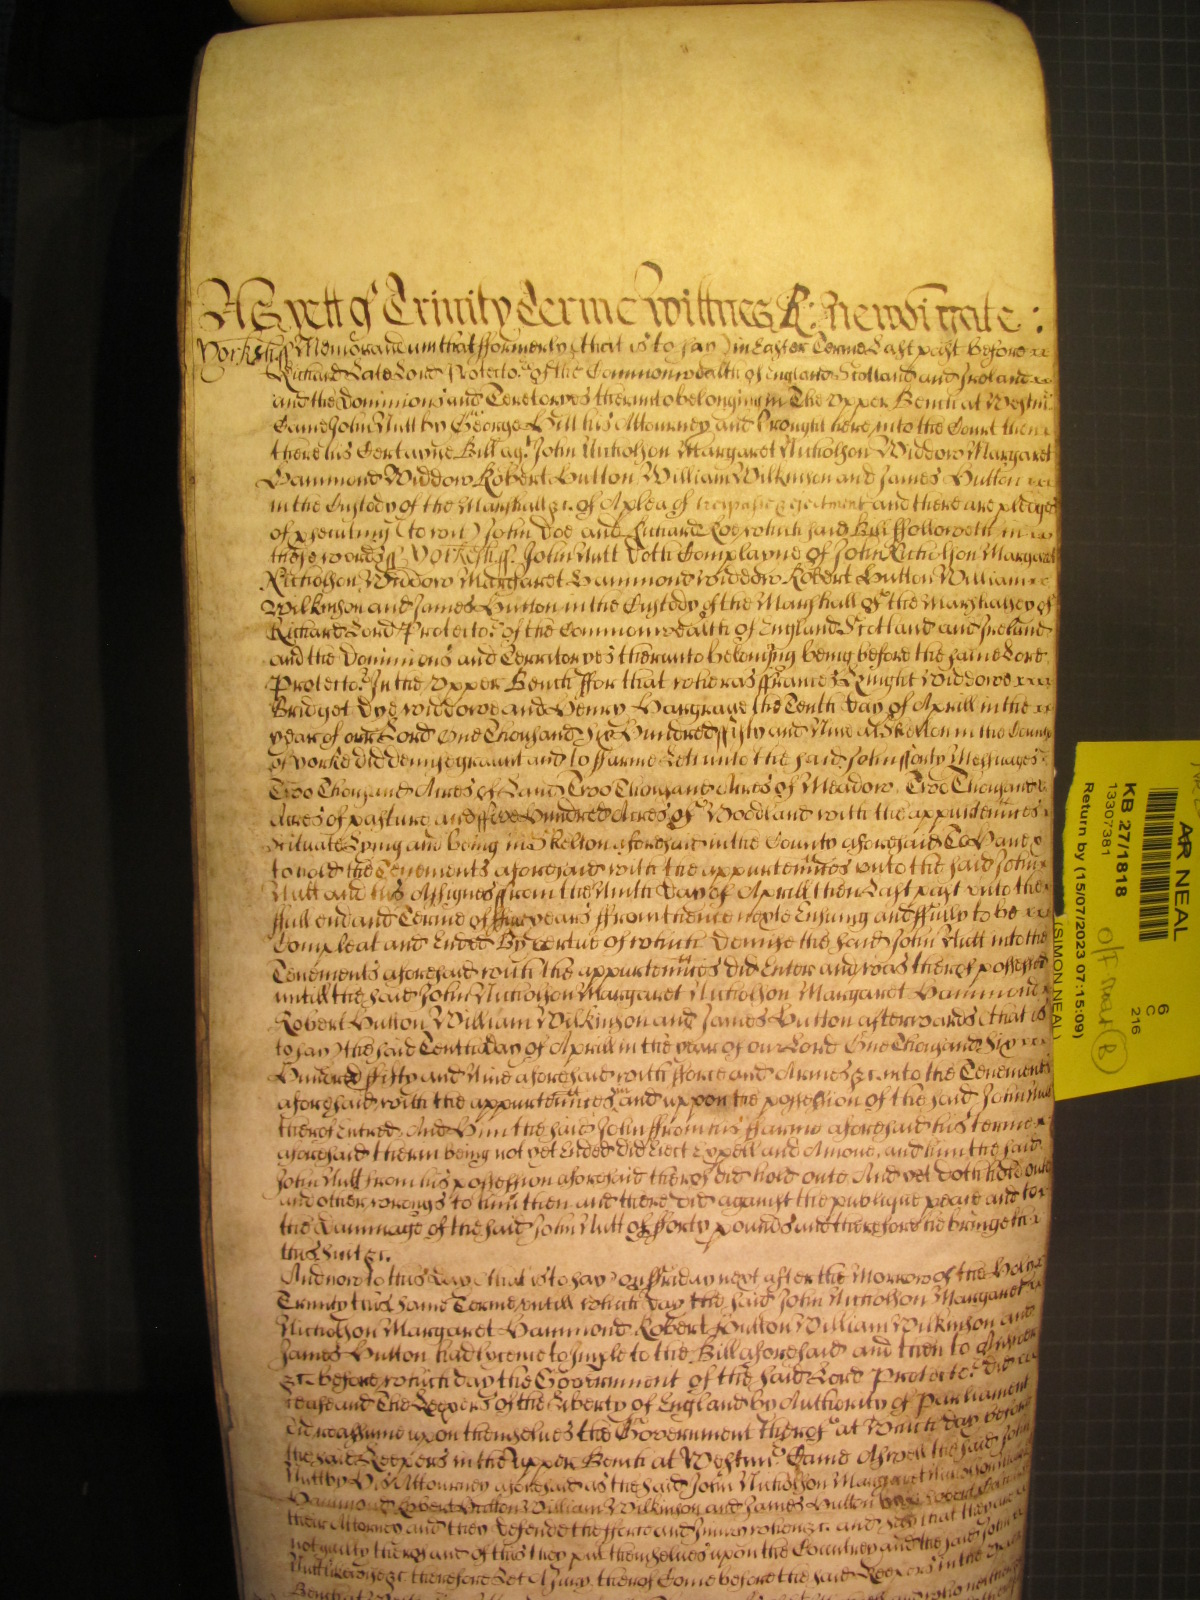 As yett of Trinity Terme Wittnes R: Newdigate :
Yorkshr ss Memorandum that fformerly (that is to say) in Easter Terme Last past before
Richard Late Lord Protector of the Commonwealth of England Scotland and Ireland
and the Dominions and Terretoryes therunto belonging in The Upper Bench at Westmr
Came John Nutt by George Hill his Attourney and brought here into the Court then
there his Certayne Bill agt John Nicholson Margaret Nicholson Widdow Margaret
Hammond Widdow Robert Hutton William Wilkinson and James Hutton
in the Custody of the Marshall &c. of A plea of trespasse & ejectment and there are pledges
of prsecuting (to wit) John Doe and Richard Roe which said Bill ffolloweth in
these words ss Yorkshr ss. John Nutt doth Complayne of John Nicholson Margaret
Nicholson Widdow Margaret Hammond Widdow Robert Hutton William
Wilkinson and James Hutton in the Custody of the Marshall of the Marshallsey of
Richard Lord Protector of the Commonwealth of England Scotland and Ireland
and the Dominions and Territoryes therunto belonging being before the same Lord
Protector In the Upper Bench ffor that wheras ffrances Knight Widdowe
Bridget Dye widdowe and Henry Hargrave the Tenth day of Aprill in the
year of our Lord One Thousand Six Hundred ffifty and Nine at Skelton in the County
of Yorke did demise graunt and to ffarme Lett unto the said John fforty Messuages
Two Thousand Acres of Land Two Thousand Acres of Meadow Two Thousand
Acres of pasture and ffive Hundred Acres of Woodland with the appurtennces
Scituate Lying and being in Skelton aforesaid in the County aforesaid To Have and
to hold the Tenements aforesaid with the appurtennces unto the said John
Nutt and his Assignes ffrom the Ninth day of Aprill then Last past unto the
ffull end and Terme of ffive years ffrom thence nexte Ensuing and ffully to be
Compleat and Ended By vertue of which Demise the said John Nutt into the
Tenements aforesaid with the appurtennces did Enter and was therof possessed
untill the said John Nicholson Margaret Nicholson Margaret Hammond
Robert Hutton William Wilkinson and James Hutton afterwards (that is
to say) the said Tenth day of Aprill in the year of our Lord One Thousand Six
Hundred ffifty and Nine aforesaid with fforce and Armes &c. into the Tenements
aforesaid with the appurtennces and uppon the possession of the said John Nutt
therof Entred And Him the said John ffrom his ffarme aforesaid his terme
aforesaid therin being not yet Ended did Eject Expell and Amove, and him the said
John Nutt from his possession aforesaid therof did hold oute And yet doth hold oute
and other wrongs to him then and there did against the publique peace and to
the Dammage of the said John Nutt of fforty pounds and therefore he bringeth
this suite &c.
And now to this day (that is to say) on ffriday next after the Morrow of the Holy
Trinity this same Terme untill which day the said John Nicholson Margaret
Nicholson Margaret Hammond Robert Hutton William Wilkinson and
James Hutton had lycence to Imple to the Bill aforesaid and then to Answer
&c. before which day the Government of the said Lord Protector did
cease and The Keepers of the Liberty of England by Authority of Parliament
did reassume upon themselves the Government therof at Which day before
the said Keepers in the Upper Bench at Westmr Came Aswell the said John
Nutt by His Attourney aforesaid as the said John Nicholson Margaret Nicholson
Hammond Robert Hutton William Wilkinson and James Hutton by
their Attorney and they defende the fforce and Injury when &c. and say that they are
not guilty therof and of this they put themselves upon the Countrey and the said John
Nutt likewise &c. therefore Let A Jury therof Come before the said Keepers in the Upper
AR NEAL
KB 27/1818
13307381
6
C
216
Return by (15/07/2023 07:15:09)
(SIMON NEAL)